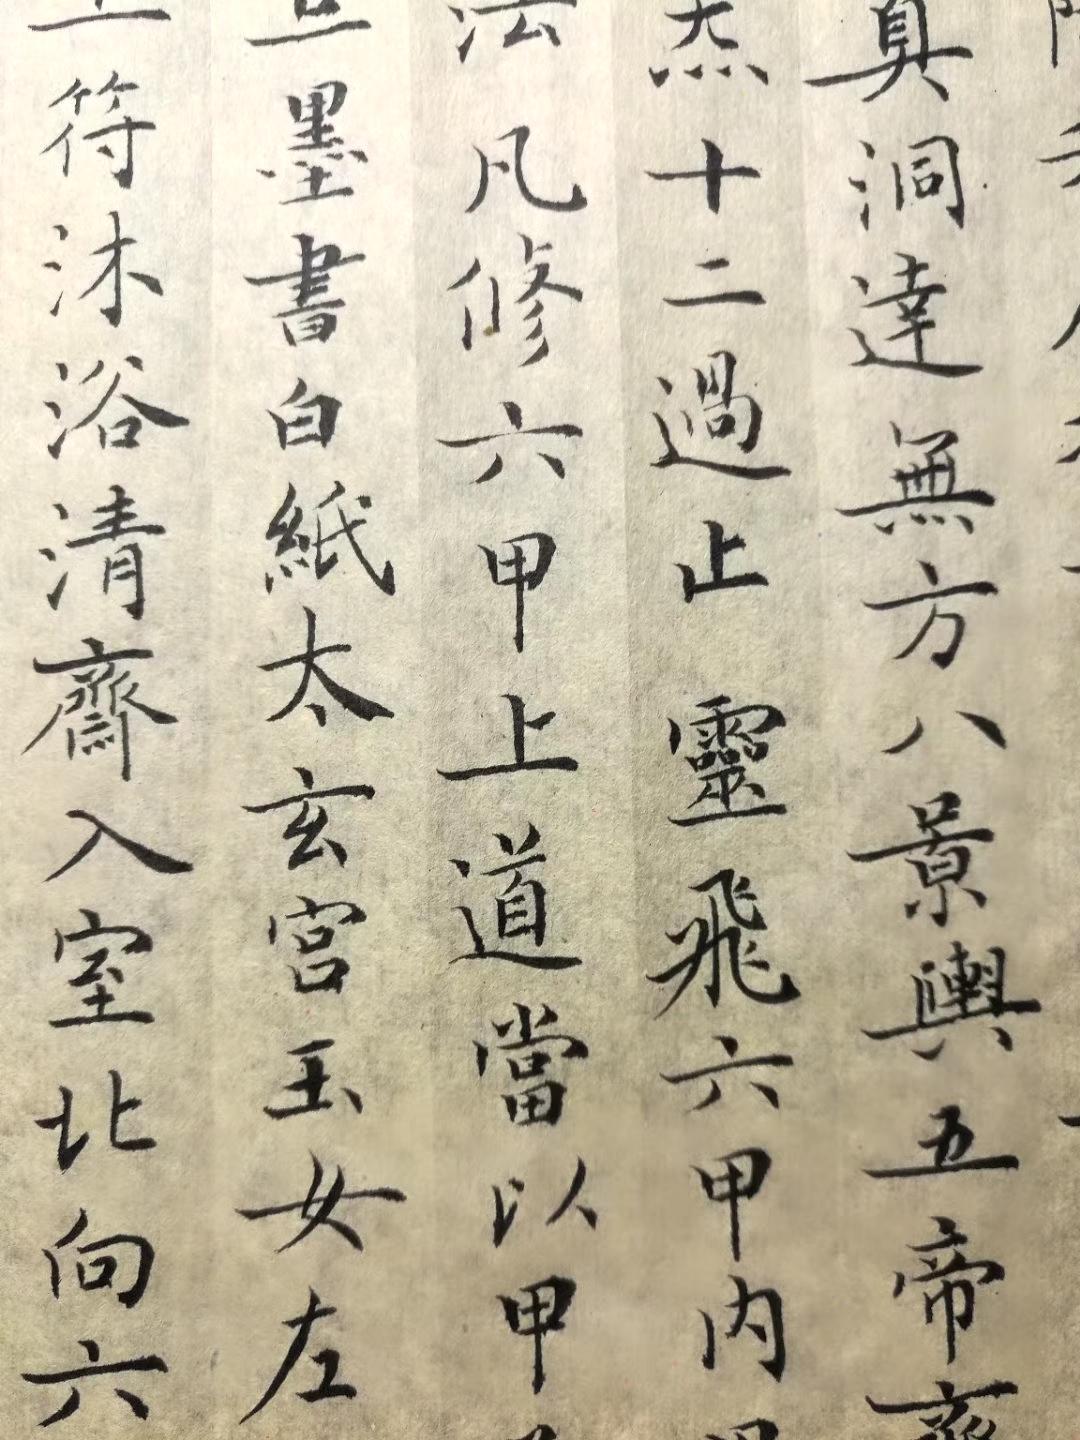 真洞達無方八景輿五帝齊
炁十二過止 靈飛六甲內
法凡修六甲上道當以甲
墨書白紙太玄宮玉女左
上符沐浴清齋入室北向六